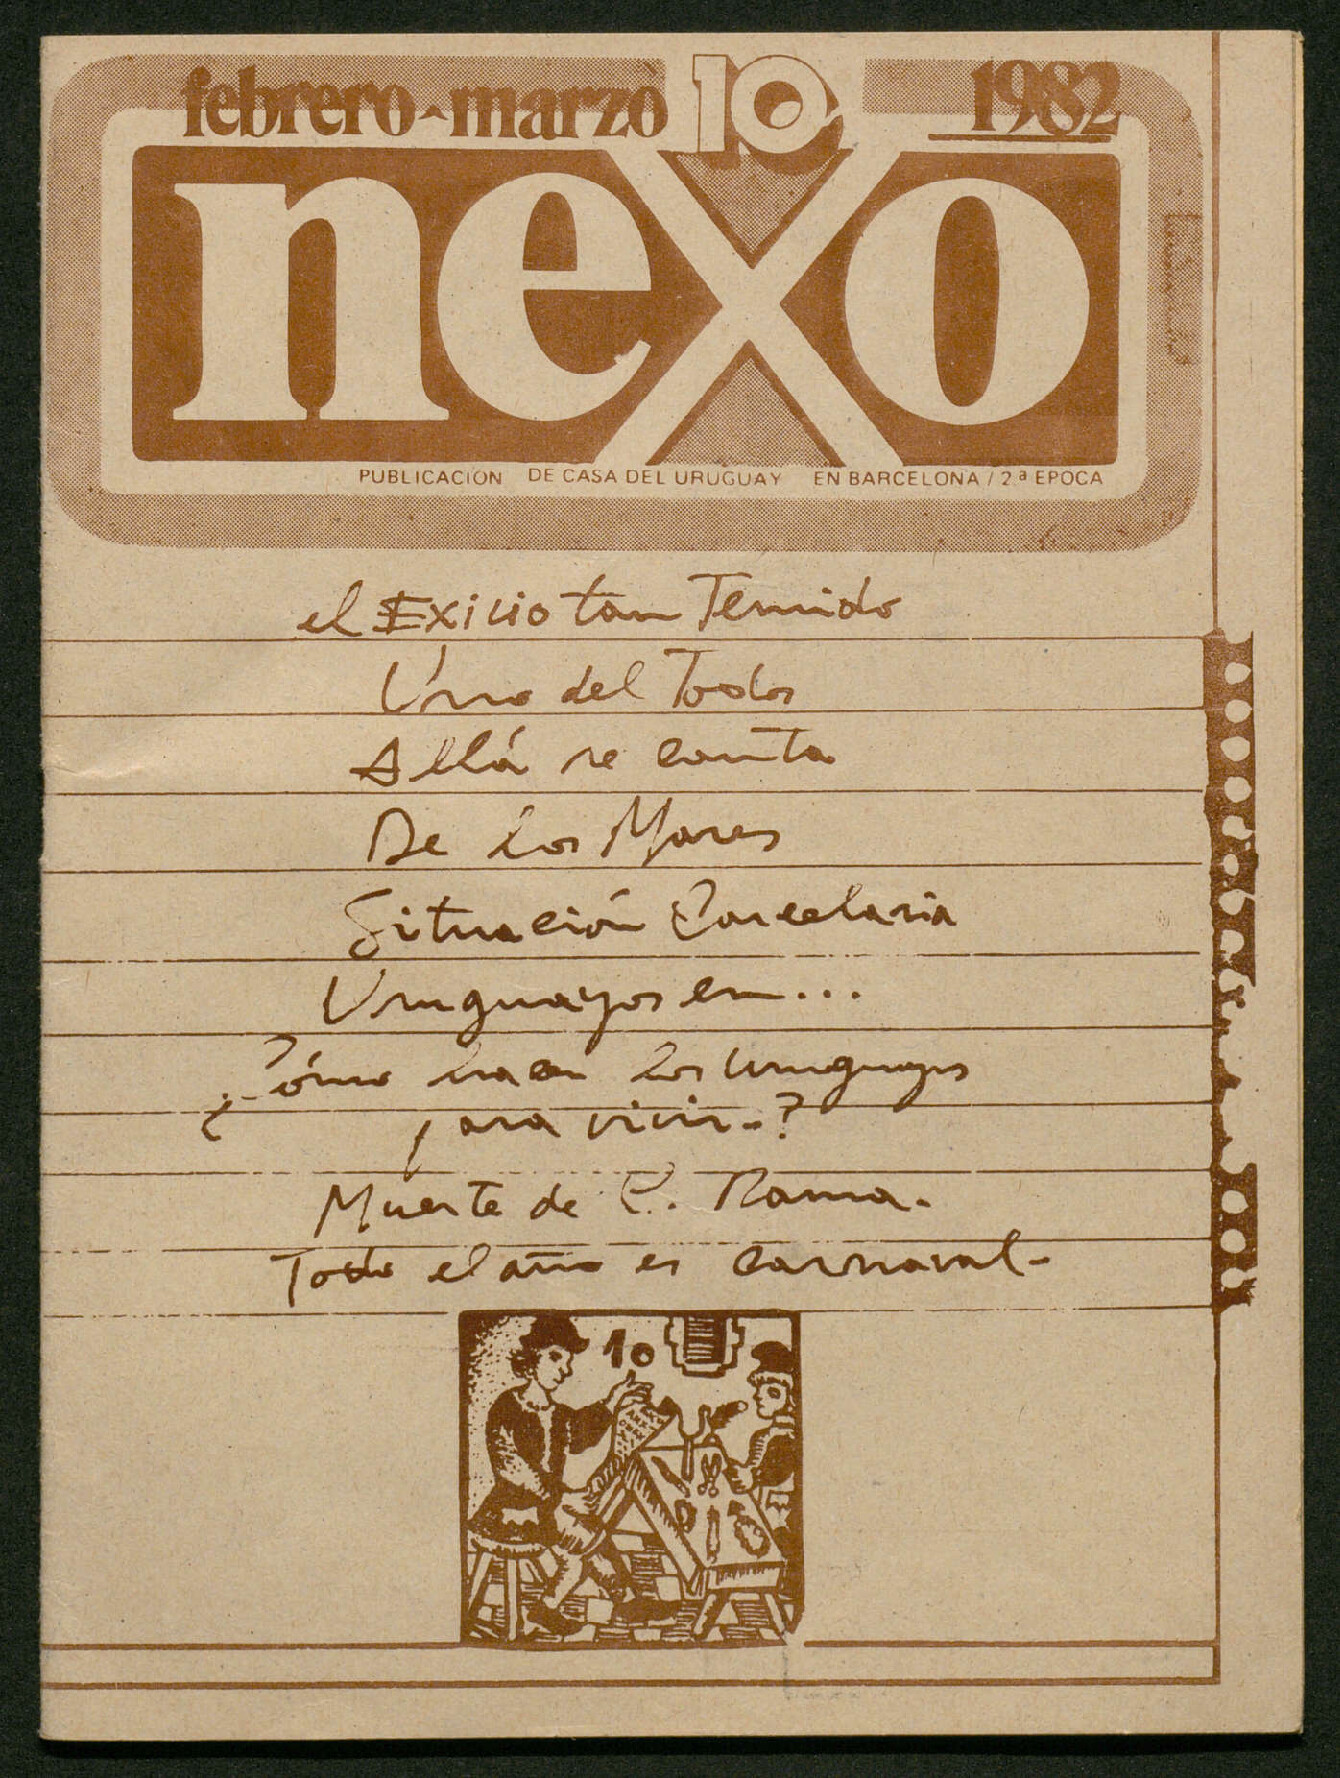 febrero-marzo 10 1982
nexo
PUBLICACION DE CASA DEL URUGUAY EN BARCELONA / 2.ª EPOCA
el Exilio tan Temido
Uno del Todos
Allá se canta
De los Mares
Situación Carcelaria
Uruguayos en...
¿Cómo hacen los uruguayos
para vivir.?
Muerte de C. Rama.
Todo el año es carnaval.
10